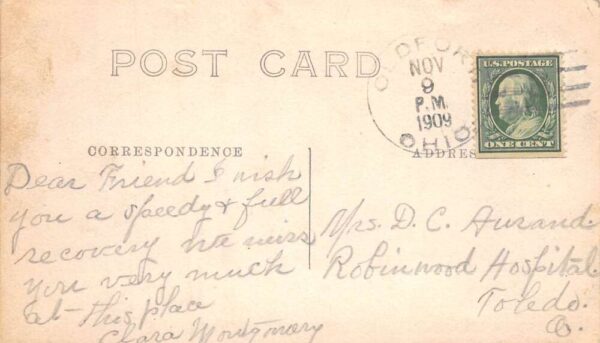 POST CARD
OLDFORT
NOV
9
P.M.
1909
OHIO
U.S. POSTAGE
ONE CENT
CORRESPONDENCE
ADDRESS
Dear Friend I wish
you a speedy & full
recovery We miss
you very much
at this place
Clara Montgomery
Mrs. D. C. Aurand.
Robinwood Hospital
Toledo.
O.